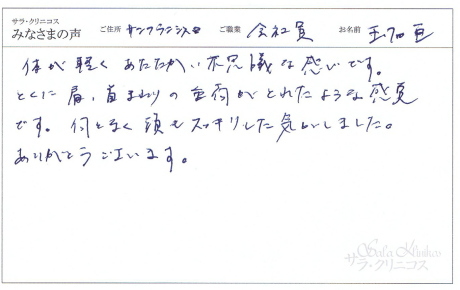 サラ・クリニコス
みなさまの声 ご住所 サンフランシスコ ご職業 会社員 お名前
体が軽く あたたかい不思議な感じです。
とくに肩、首まわりの重荷がとれたような感覚
です。何となく頭もスッキリした気がしました。
ありがとうございます。
Sara Klinikos
サラ・クリニコス